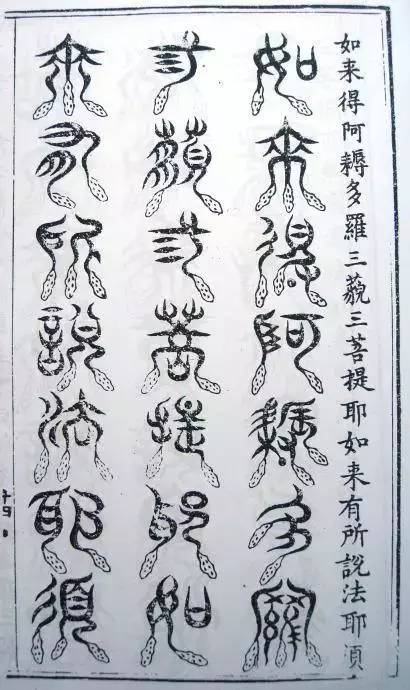 如来得阿耨多羅三藐三菩提耶如来有所說法耶湏
如來得阿耨多羅
三藐三菩提耶如
來有所說法耶須
十四